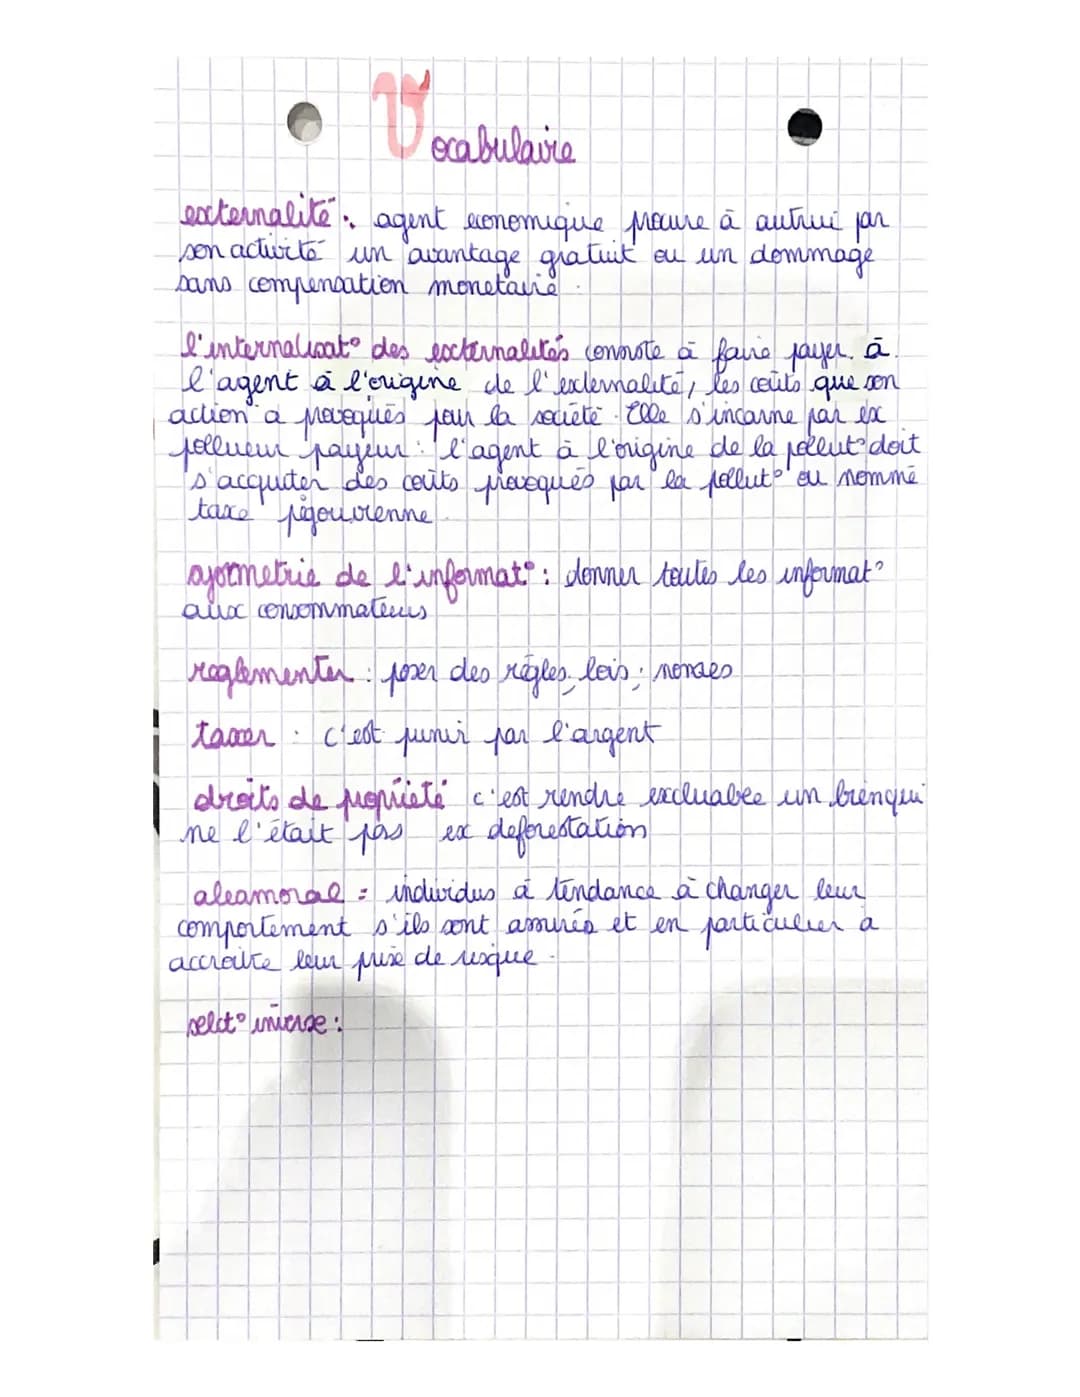 Vocabulaire
externalité : agent economique procure à autrui par
son activité un avantage gratuit ou un dommage
sans compensation monetaire.
l'internalisat° des externalités connote à faire payer à
l'agent à l'origine de l'externalité, les coûts que son
action a provoqués pour la société. Elle s'incarne par ex
pollueur payeur : l'agent à l'origine de la pollut° doit
s'acquiter des coûts provoqués par la pollut° ou nommé
taxe pigouvienne.
asymetrie de l'informat° : donner toutes les informat°
aux consommateurs
reglementer : poser des règles, lois, normes
taxer : c'est punir par l'argent
droits de propriété c'est rendre excluable un bien qui
ne l'était pas ex deforestation
aleamoral = individus à tendance à changer leur
comportement s'ils sont assurés et en particulier à
accroitre leur prise de risque.
selct° inverse :